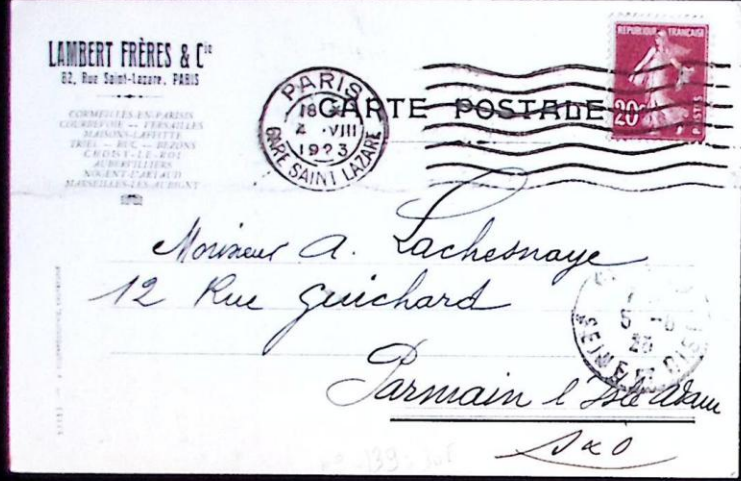 LAMBERT FRÈRES & Cie
62, Rue Saint-Lazare, PARIS
CORMEILLES-EN-PARISIS
COURBEVOIE — VERSAILLES
MAISONS-LAFFITTE
TRIEL — BUC — BEZONS
CHOISY-LE-ROI
AUBERVILLIERS
NOGENT-L'ARTAUD
MARSEILLES-LES-AUBIGNY
PARIS
18
4 · VIII
1923
GARE SAINT LAZARE
CARTE POSTALE
REPUBLIQUE FRANÇAISE
20c
POSTES
Monsieur A. Lachesnaye
12 Rue Guichard
Parmain l'Isle Adam
S & O
5 - 8
23
SEINE
139